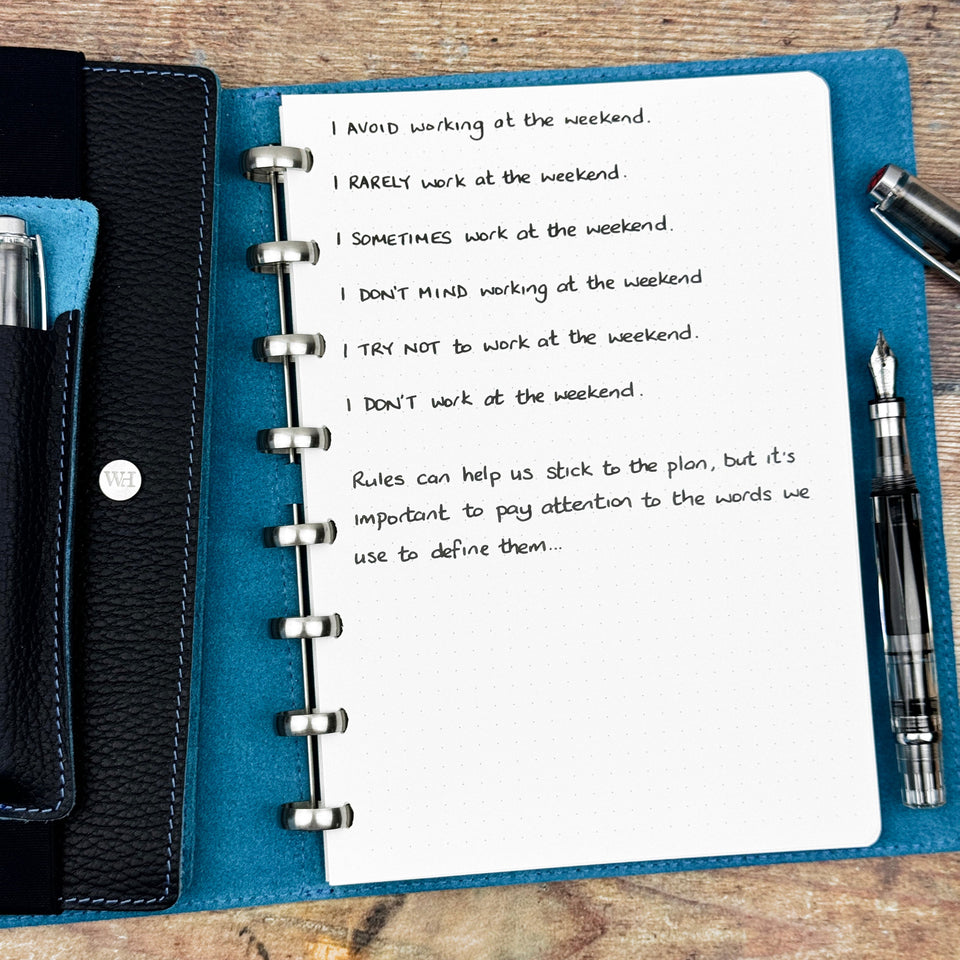 I AVOID working at the weekend.
I RARELY work at the weekend.
I SOMETIMES work at the weekend.
I DON'T MIND working at the weekend
I TRY NOT to work at the weekend.
I DON'T work at the weekend.
Rules can help us stick to the plan, but it's
important to pay attention to the words we
use to define them...
WH